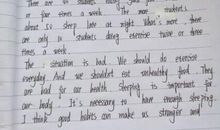 There are 40 students
or four times a week. The most students
about go sleep late at night. What's more, there
are only 10 students doing exercise twice or three
times a week.
The situation is bad. We should do exercise
everyday. And we shouldn't eat unhealthy food. They
are bad for our health. Sleeping is important for
our body. It's necessary to have enough sleeping.
I think good habits can make us stronger and